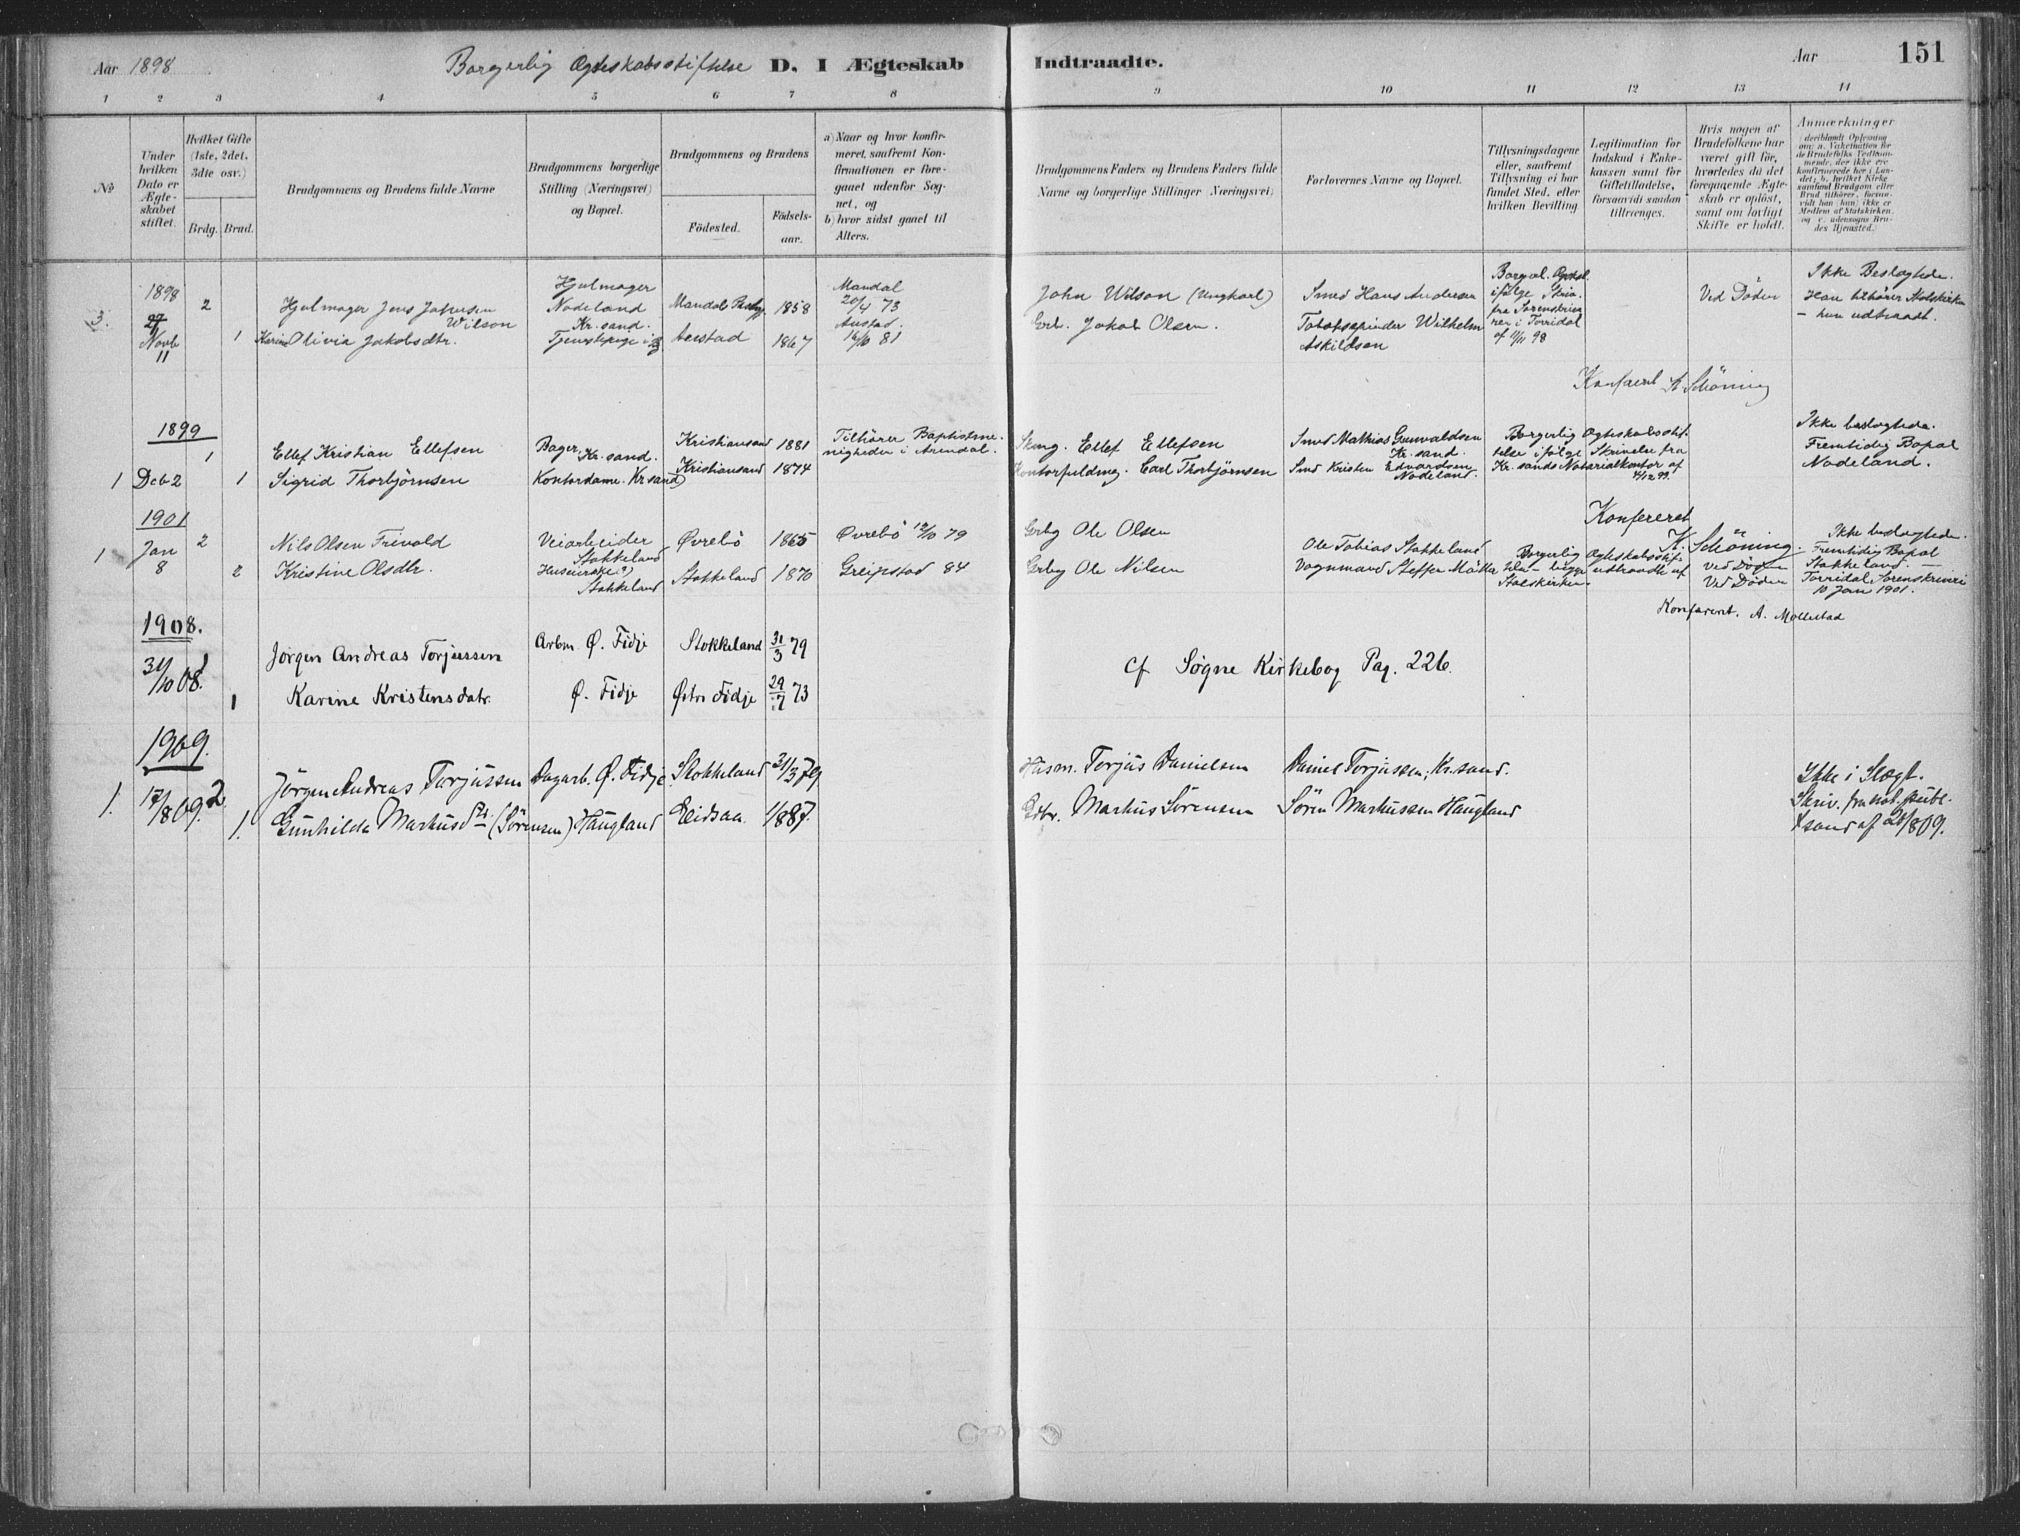 Aar 1898 Borgerlig Ægteskabsstiftelse D. I Ægteskab Indtraadte. Aar 151
1 2 3 4 5 6 7 8 9 10 11 12 13 14
No
Under hvilken Dato er Ægteskabet stiftet.
Hvilket Gifte (1ste, 2det, 3die osv.)
Brdg. Brud.
Brudgommens og Brudens fulde Navne
Brudgommens borgerlige Stilling (Næringsvei) og Bopæl.
Brudgommens og Brudens
Fødested. Fødselsaar.
a) Naar og hvor konfirmeret, saafremt Konfirmationen er foregaaet udenfor Sognet, og
b) hvor sidst gaaet til Alters.
Brudgommens Faders og Brudens Faders fulde Navne og borgerlige Stillinger (Næringsvei)
Forlovernes Navne og Bopæl.
Tillysningsdagene eller, saafremt Tillysning ei har fundet Sted, efter hvilken Bevilling.
Legitimation for Indskud i Enkekassen samt for Giftetilladelse, forsaavidt saadan tiltrænges.
Hvis nogen af Brudefolkene har været gift før, hvorledes da det foregaaende Ægteskab er opløst, samt om lovligt Skifte er holdt.
Anmærkninger
3. 1898 Novb 11
2 Hjulmager Jens Johnsen Wilson Hjulmager Nodeland Kr.sand. Mandal 1858 Mandal 20/4 73
John Wilson (Ungkarl) Smed Hans Andersen
1 Karine Olivia Jakobsdtr. Austad 1867 Austad. 16/10 81
Jakob Olsen. Wilhelm Askildsen
af 11/11 98
Ved Døden
Ikke Beslægtede.
Han tilhører Statskirken
– hun udtraadt.
Konfereret A. Schöning
1899
1 Ellef Kristian Ellefsen Bager, Kr.sand. Kristiansand 1881 Tilhører Baptistmenigheden i Arendal.
Ellef Ellefsen Smed Mathias Gunvaldsen Kr.sand.
1 Dcb 2 1 Sigrid Thorbjørnsen Kontordame. Kr.sand Kristiansand 1874
Kontorfuldmg. Carl Thorbjørnsen Smed Kristen Edvardsen Nodeland.
Borgerlig Ægteskabsstiftelse ifølge Skrivelse fra Kr.sands Notarialkontor af
Ikke beslægtede.
Fremtidig Bopæl
Nodeland.
1901 Konfereret
1 Jan 8 2 Nils Olsen Frivold Veiarbeider Stokkeland Øvrebø 1865 Øvrebö 12/10 79
Grbg Ole Olsen Ole Tobias Stokkeland
2 Kristine Olsdtr. Stokkeland Stokkeland 1870 Greipstad 84
Grbg Ole Nilsen
Borgerlig Ægteskabsstiftelse – begge udtraadte af Statskirken.
K. Schöning.
Ved Døden
Ved Døden
Ikke beslægtede.
Fremtidig Bopæl
Stokkeland. –
Torridal Sorenskriveri
10 Jan 1901.
Konfereret. A. Mollestad
1908.
31/10 08. 1 Jørgen Andreas Torjussen Arbm. Ø. Fidje Stokkeland 31/3 79
cf Søgne Kirkebog Pag. 226.
1 Karine Kristensdatr. Ø. Fidje Østre Fidje 29/7 73
1909.
1. 17/8 09. 2 Jörgen Andreas Torjussen Dagarb. Ø. Fidje Stokkeland 31/3 79
Husm. Torjus Danielsen Daniel Torjussen, Kr.sand.
1. Gunhilda Markusdtr. (Sörensen) Haugland Eidsaa. 1887.
Gdbr. Markus Sörensen Sören Markussen Haugland
Ikke i Slægt.
Skriv. fra not. publ.
Xsand af 20/8 09.